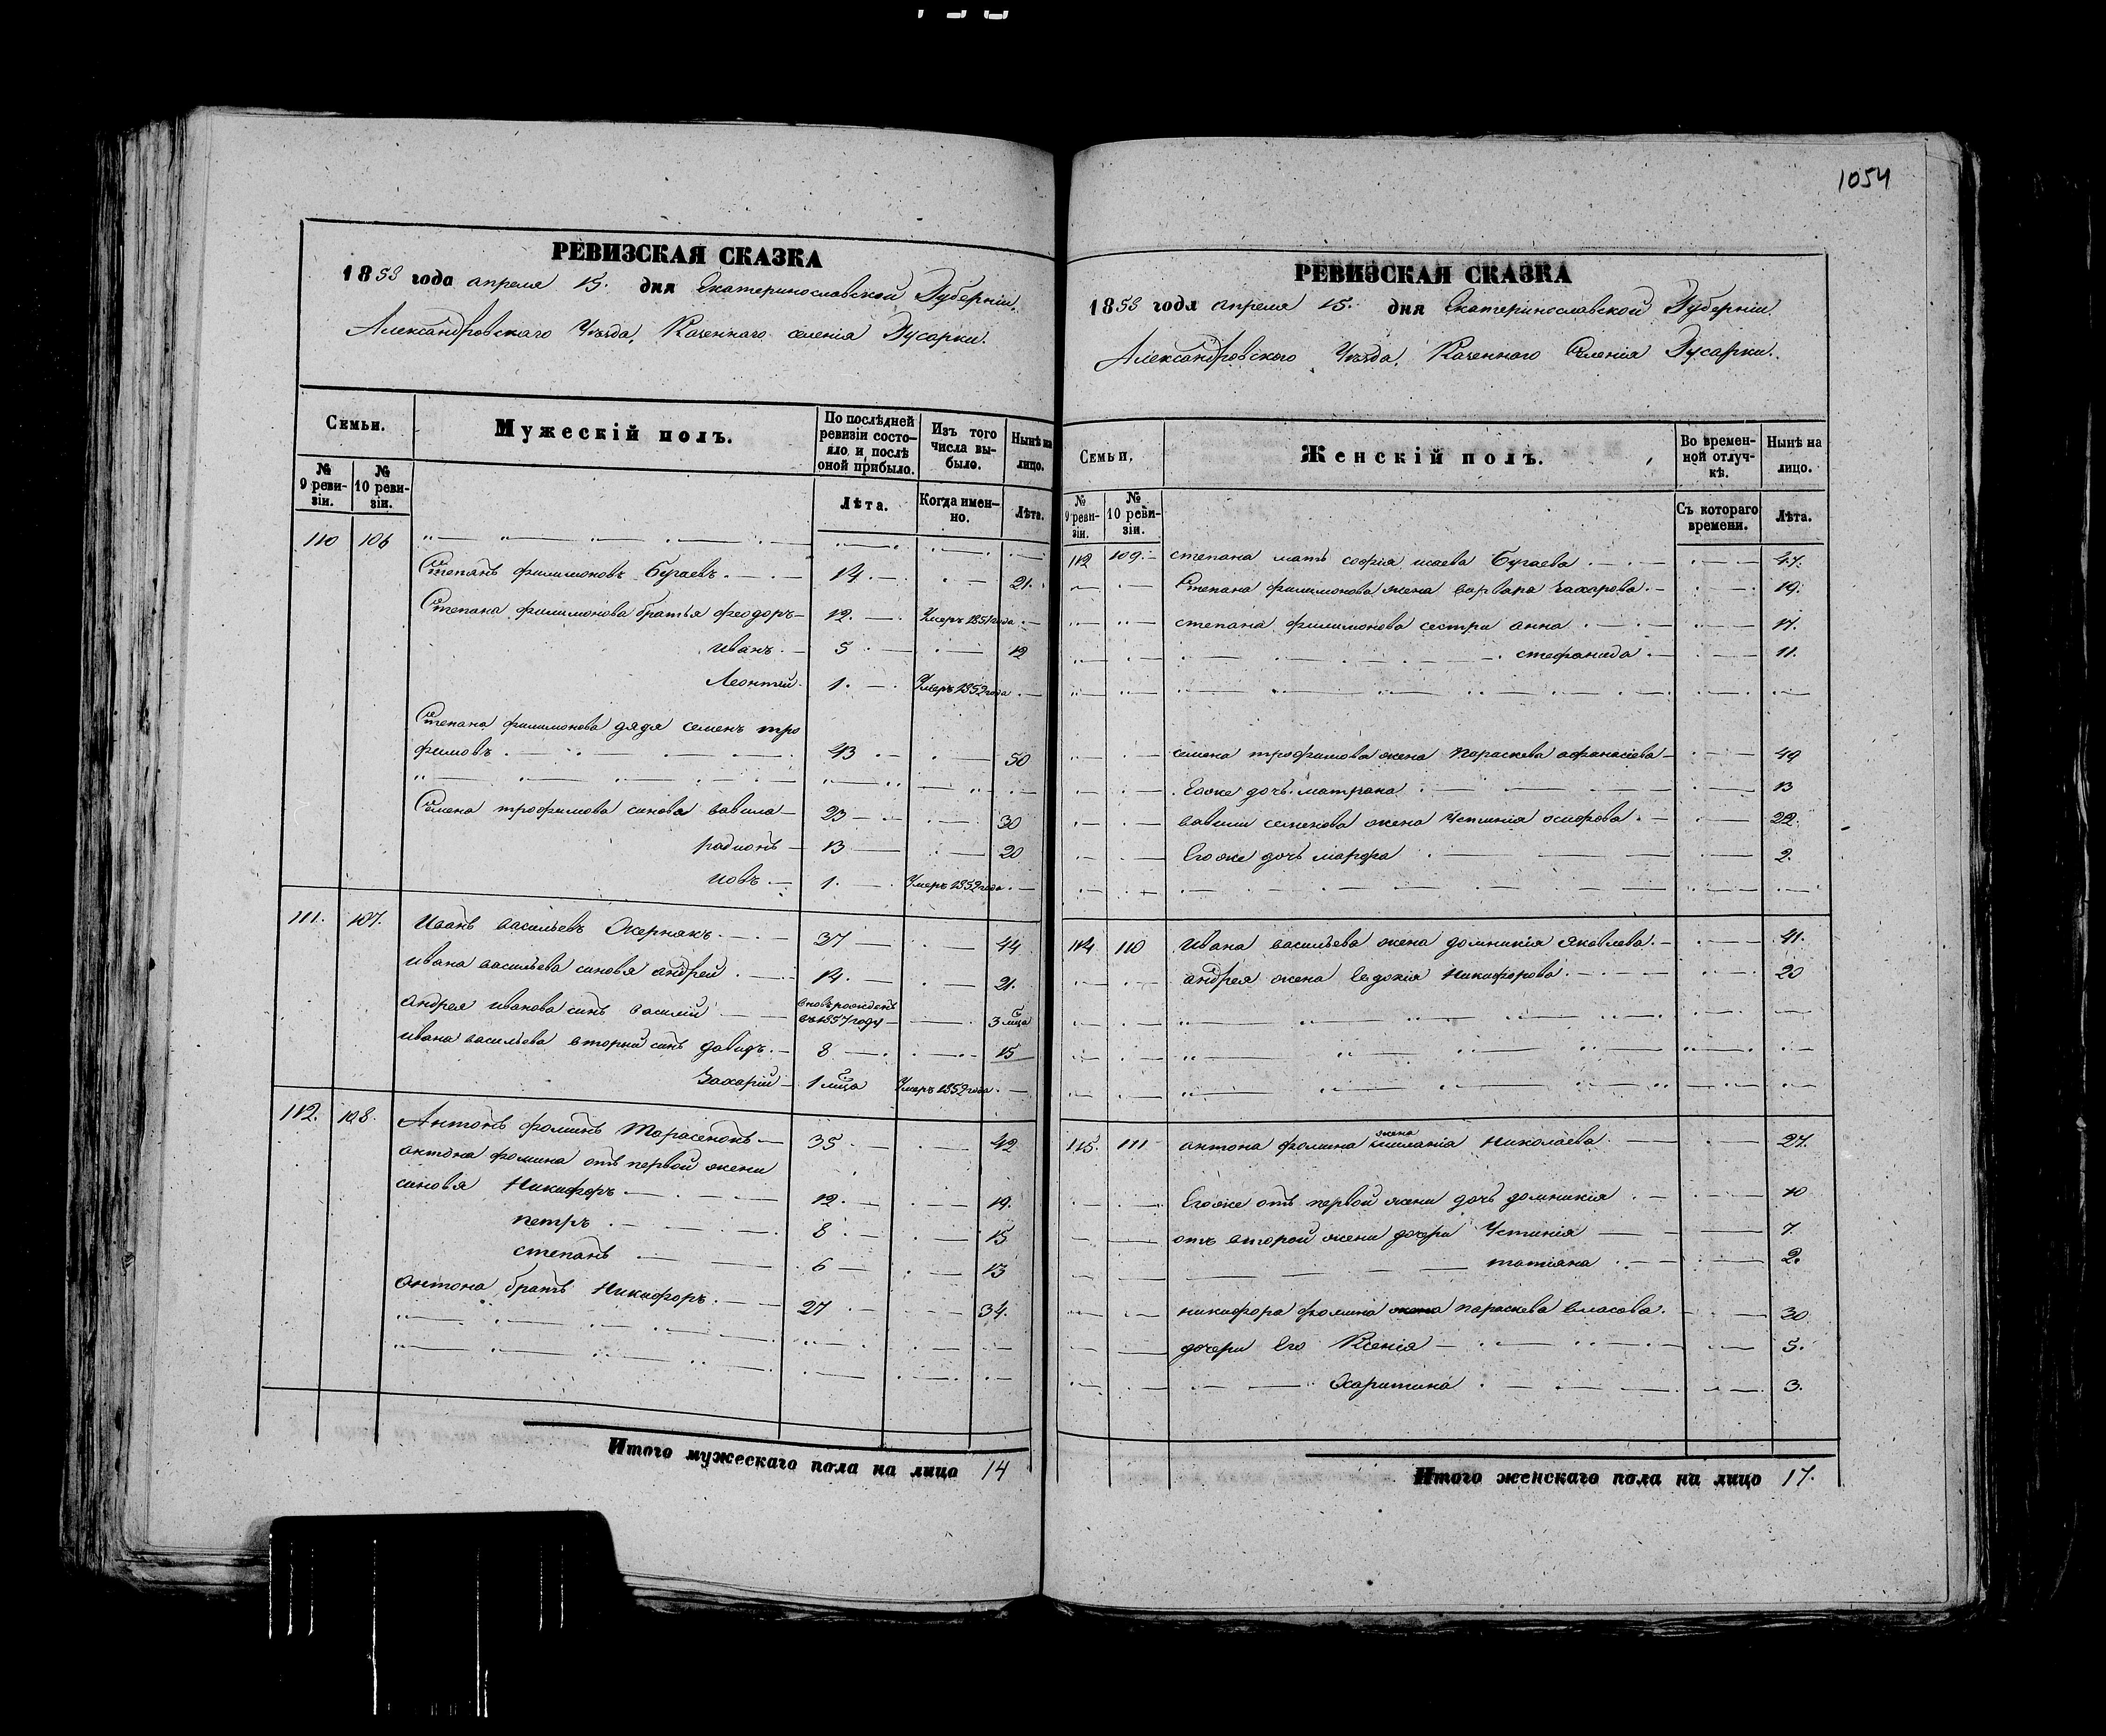 1054
РЕВИЗСКАЯ СКАЗКА
1858 года апреля 15. дня Екатеринославской Губерніи,
Александровскаго Уѣзда, Казеннаго селенія Гусарки.
Семьи.
Мужескій полъ.
По послѣдней ревизіи состояло и послѣ оной прибыло.
Изъ того числа выбыло.
Нынѣ на лицо.
№ 9 ревизіи.
№ 10 ревизіи.
Лѣта.
Когда именно.
Лѣта.
110 106
Степанъ филимоновъ Бугаевъ 14. 21.
Степана филимонова братья феодоръ 12. Умеръ 1851 года
иванъ 5 12
Леонтий 1. Умеръ 1852 года
Степана филимонова дядя семенъ тро
фимовъ 43 50
Семена трофимова синова вавила 23 30
радионъ 13 20
иовъ 1. Умеръ 1852 года
111. 107. Иванъ васильевъ 37 44
ивана васильева синовя андрей 14. 21.
андрея иванова синъ василий вновь рожденъ въ 1857 году 3 мца
ивана васильева вторий синъ давидъ 8 15
Захарий 1 мца Умеръ 1852 года
112. 108. Антонъ фоминъ Тарасенонъ 35 42
антона фомина отъ первой жени
синовя Никифоръ 12. 19.
петръ 8 15
степанъ 6 13
антона братъ Никифоръ 27 34.
Итого мужескаго пола на лицо 14
РЕВИЗСКАЯ СКАЗКА
1858 года апреля 15. дня Екатеринославской Губерніи
Александровскаго Уѣзда, Казеннаго Селенія Гусарки.
Семьи.
Женскій полъ.
Во временной отлучкѣ.
Нынѣ на лицо.
№ 9 ревизіи.
№ 10 ревизіи.
Съ котораго времени.
Лѣта.
112 109. степана мать софія исаева Бугаева 47.
Степана филимонова жена варвара захарова 19.
степана филимонова сестри анна 17.
стефанида 11.
семена трофимова жена Параскева афанасіева 49
Егоже дочь матрона 13
вавили семенова жена Устинія осифова 22.
Егоже дочь марфа 2.
114. 110 Ивана васильева жена домникія яковлева 41.
андрея жена Евдокія Никифорова 20
115. 111 антона фомина жена меланія николаева 27.
Егоже отъ первой жени дочь домникія 10
отъ второй жени дочери Устинія 7.
татіана 2.
никифора фомина жена параскева власова 30
дочери Его Ксенія 5.
Харитина 3.
Итого женскаго пола на лицо 17.